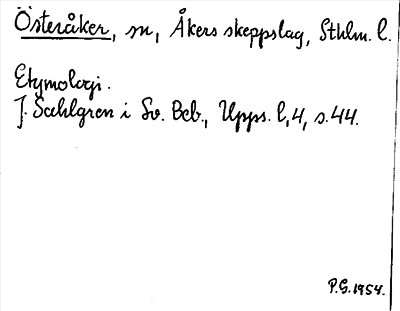 Österåker, sn, Åkers skeppslag, Sthlm. l.
Etymologi.
J. Sahlgren i Sv. Beb., Upps. l, 4, s. 44.
P.G. 1954.